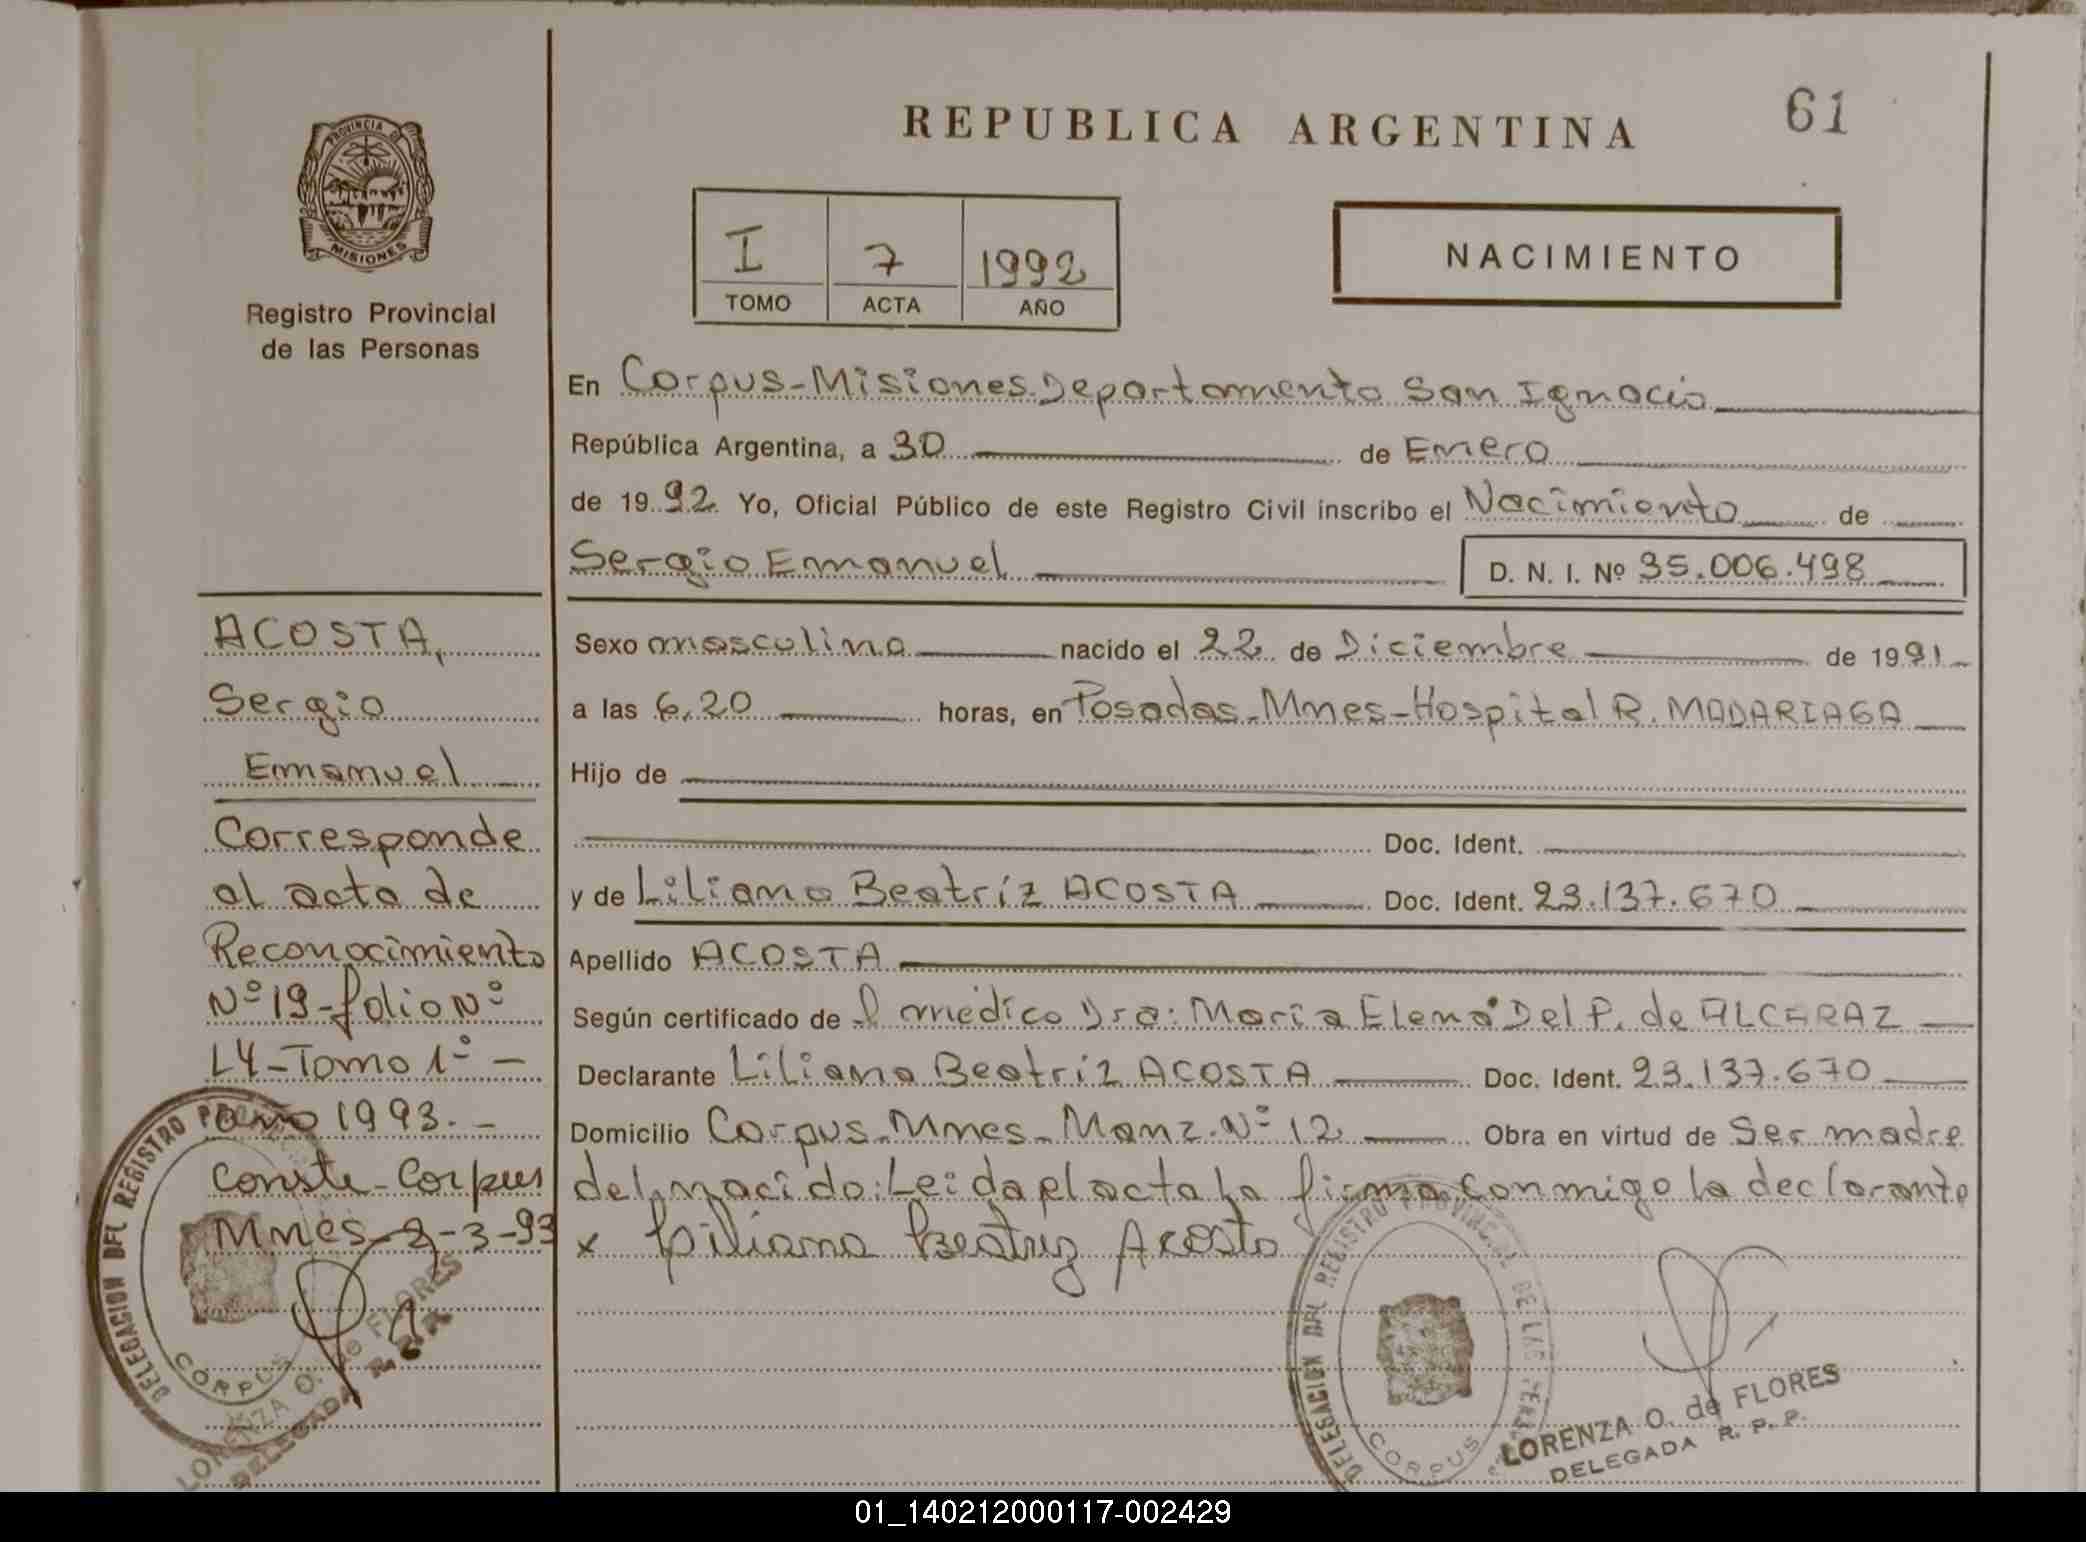 REPUBLICA ARGENTINA
61
PROVINCIA D
MISIONES
Registro Provincial
de las Personas
I 7 1992
TOMO ACTA AÑO
NACIMIENTO
En Corpus-Misiones Departamento San Ignacio
República Argentina, a 30 de Enero
de 1992 Yo, Oficial Público de este Registro Civil inscribo el Nacimiento de
Sergio Emanuel D. N. I. Nº 35.006.498
Sexo masculino nacido el 22 de Diciembre de 1991
a las 6,20 horas, en Posadas-Mnes-Hospital R. MADARIAGA
Hijo de
Doc. Ident.
y de Liliana Beatríz ACOSTA Doc. Ident. 23.137.670
Apellido ACOSTA
Según certificado de l médico Dra: María Elena Del P. de ALCARAZ
Declarante Liliana Beatríz ACOSTA Doc. Ident. 23.137.670
Domicilio Corpus-Mnes-Manz. Nº 12 Obra en virtud de Ser madre
del nacido: Leida el acta la firma conmigo la declarante
x Liliana Beatriz Acosta
ACOSTA,
Sergio
Emanuel
Corresponde
al acta de
Reconocimiento
Nº 19-folio Nº
L4-Tomo 1º-
año 1993.-
Conste-Corpus
Mnes-2-3-93
DELEGACION DEL REGISTRO
CORPUS
LORENZA O. de FLORES
DELEGADA R. P. P.
DELEGACION DEL REGISTRO PROVINCIAL DE LAS
CORPUS
LORENZA O. de FLORES
DELEGADA R. P. P.
01_140212000117-002429